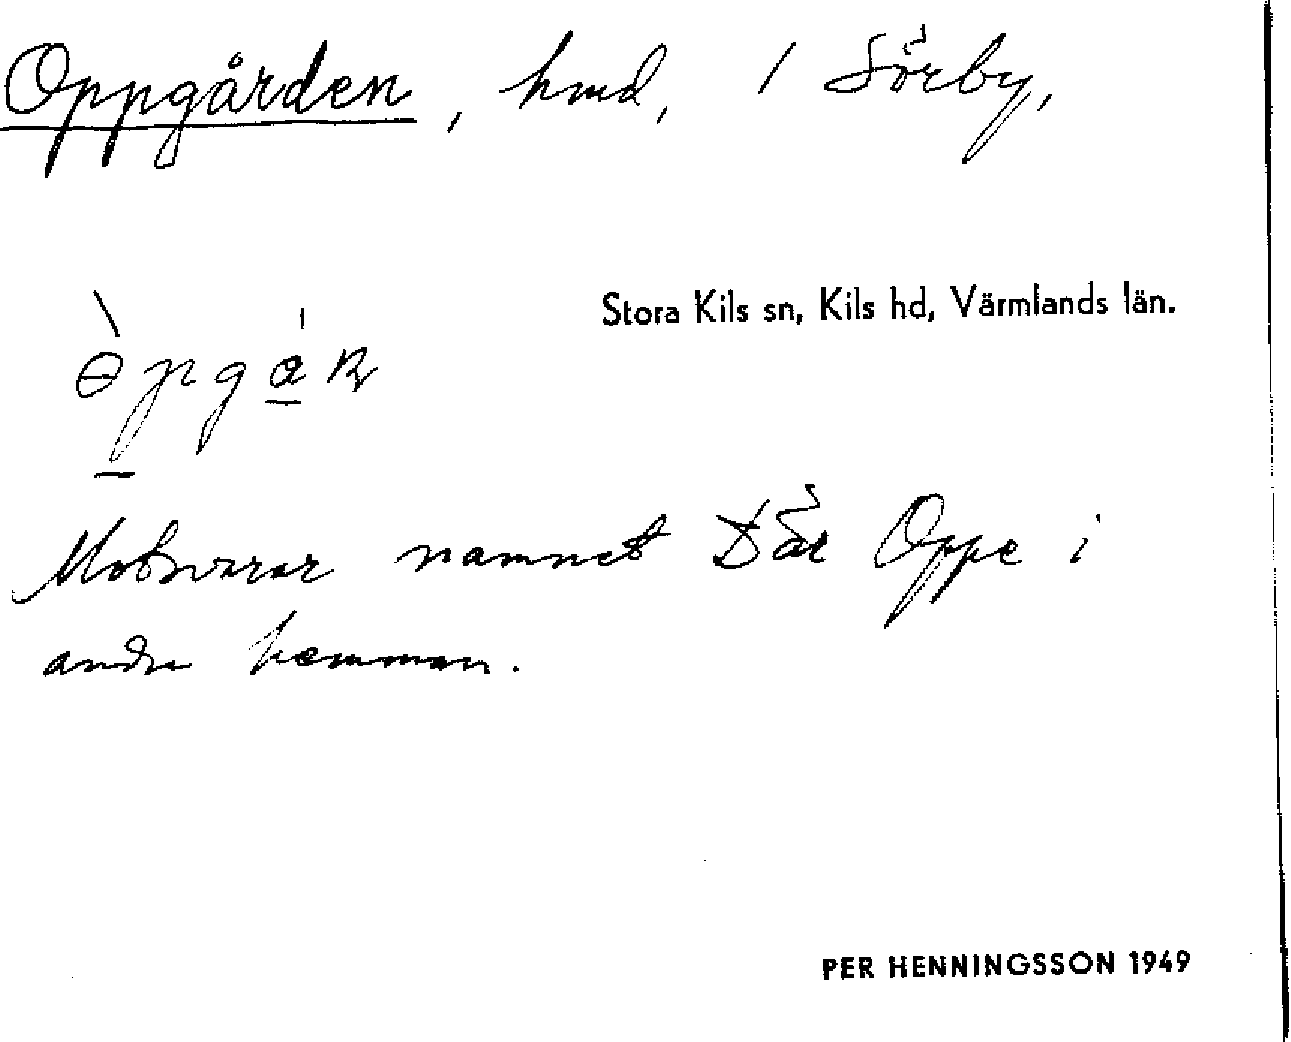 Oppgården, hmd, i Sörby,
Stora Kils sn, Kils hd, Värmlands län.
Motsvarar namnet Där Oppe i
andra hemman.
PER HENNINGSSON 1949